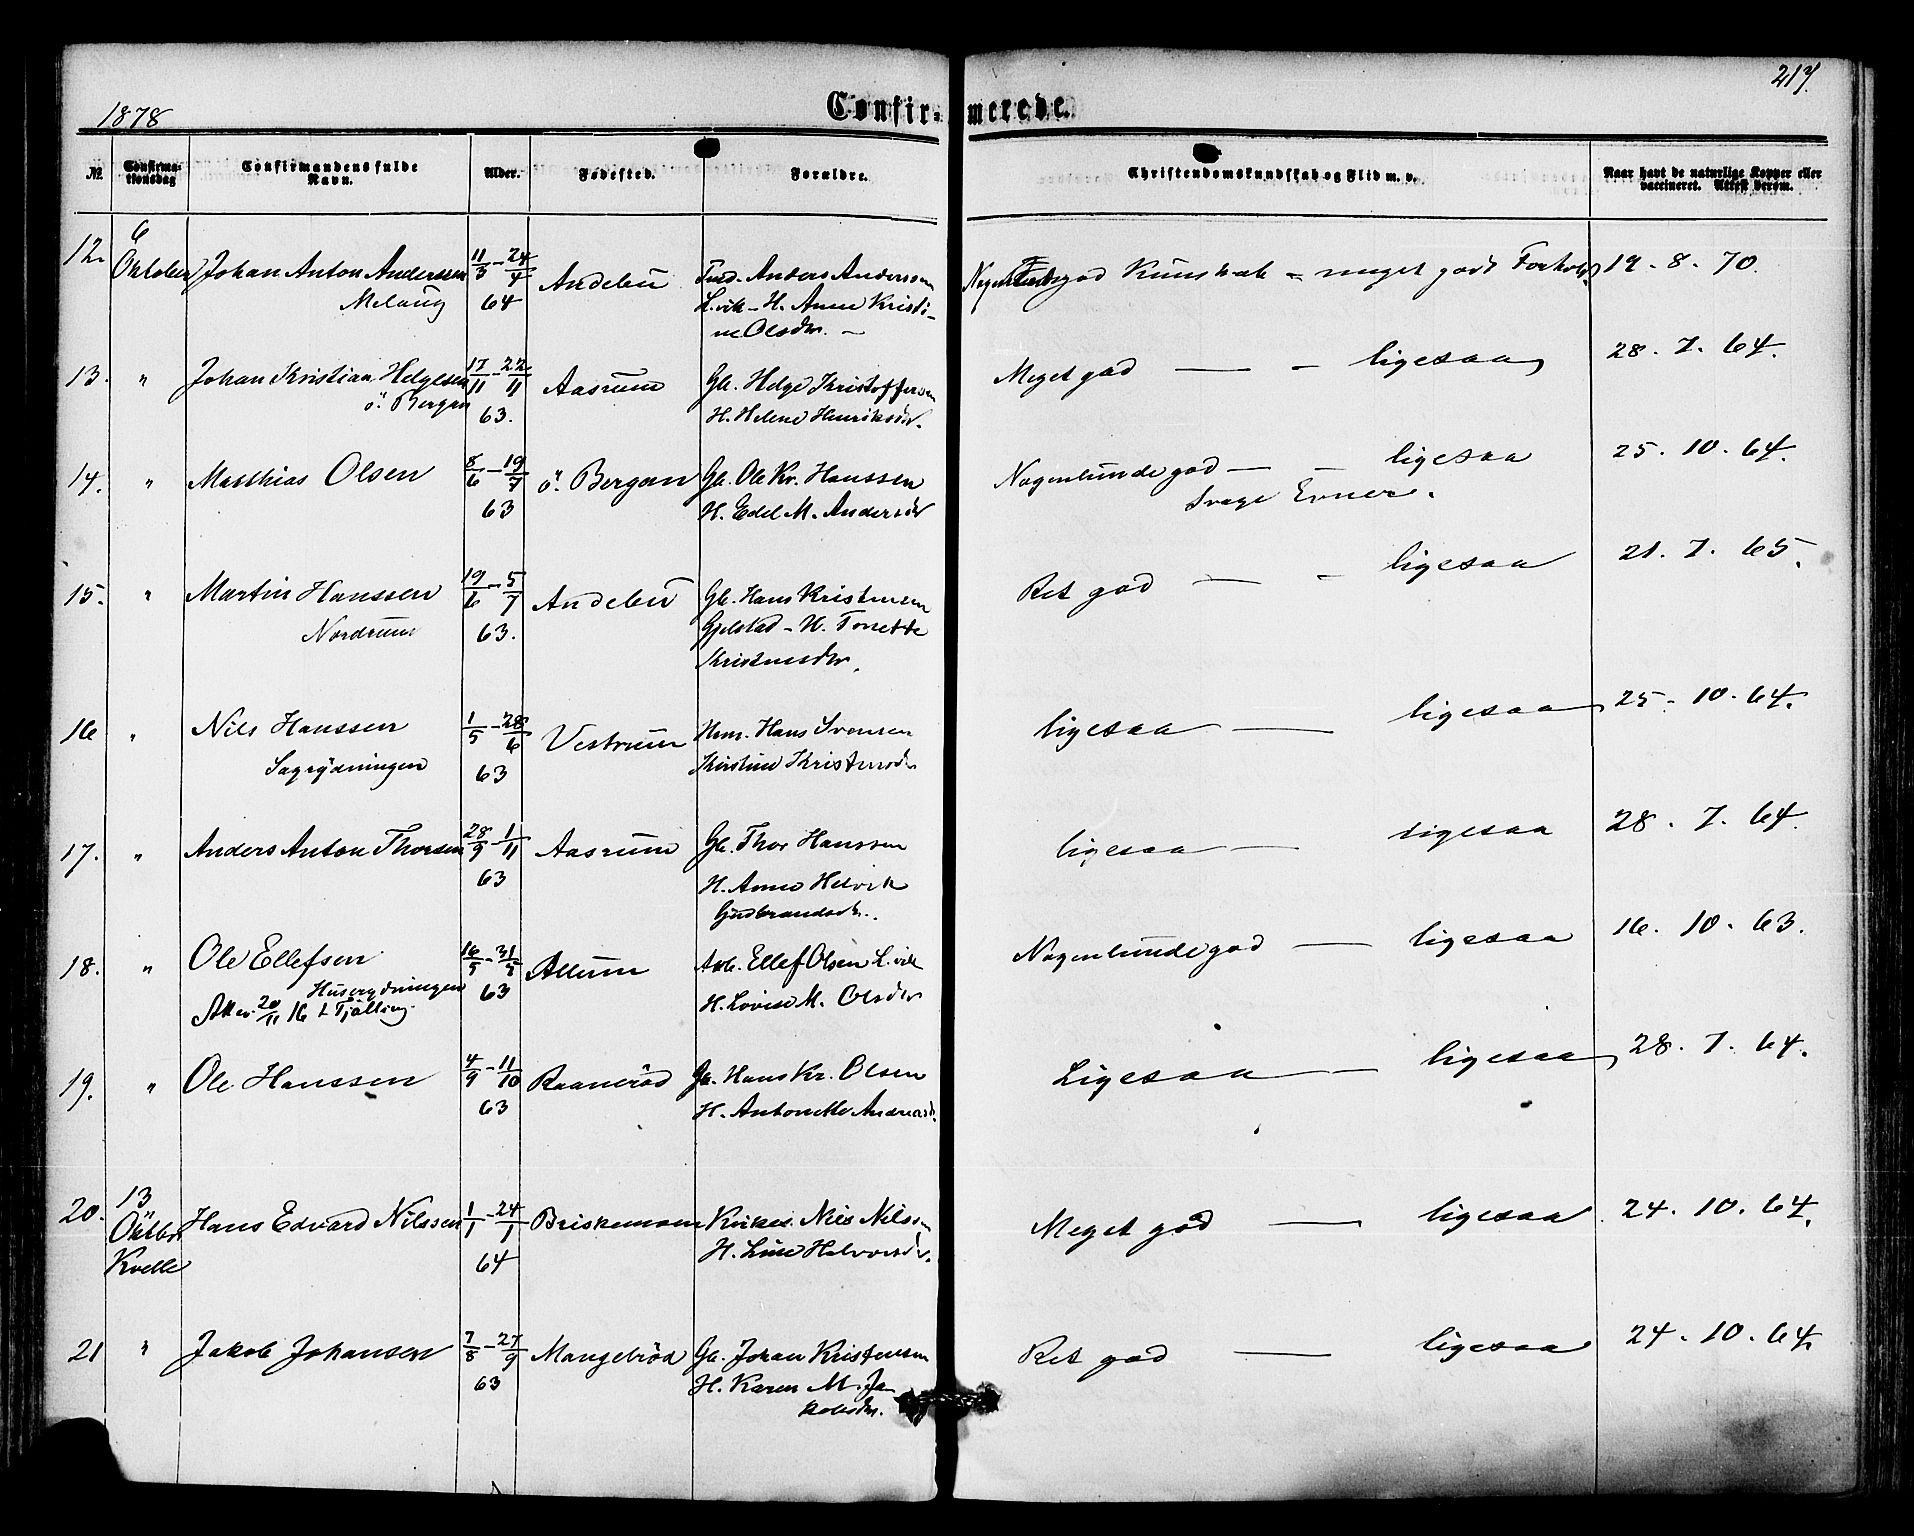 217.
1878
Confir-merede.
№.
Confirma-
tionsdag
Confirmandens fulde
Navn.
Alder.
Fødested.
Forældre.
Christendomskundskab og Flid m. v.
Naar havt de naturlige Kopper eller
vaccineret. Attest derom.
12. 6 Oktober Johan Anton Anderssen 11/3 - 24/4 Andebu Anders Anderssen god Kundskab - meget godt Forhold 19-8-70.
Melaug 64 L.vik - H. Anne Kristi-
ne Olsdr. -
13. " Johan Kristian Helgesen 17/11 - 22/11 Aasrum Gb. Helge Kristoffersen Meget god — - ligesaa 28. 7. 64.
ö. Bergan 63. H. Helene Henriksdr.
14. " Matthias Olsen 8/6 - 19/7 ö. Bergan Gb. Ole Kr. Hanssen Nogenlunde god — - ligesaa 25. 10. 64.
63 H. Edel M. Andersdr Svage Evner.
15. " Martin Hanssen 19/6 - 5/7 Andebu Gb. Hans Kristensen Ret god — - ligesaa 21. 7. 65.
Nordrum 63. Gjelstad - H. Tonette
Kristensdr.
16 " Nils Hanssen 1/5 - 28/6 Vestrum Hans Svensen ligesaa — ligesaa 25. 10. 64.
Sagrydningen 63 Kirstine Kristensdr
17. " Anders Anton Thorsen 28/9 - 1/11 Aasrum Gb. Thor Hanssen ligesaa — ligesaa 28. 7. 64.
63 H. Anne Helvik
Gudbrandsdr.
18. " Ole Ellefsen 16/5 - 31/5 Allum Arb. Ellef Olsen L.vik Nogenlunde god — ligesaa 16. 10. 63.
Huserydningen 63 H. Lovise M. Olsdr
Att. 20/11 16 t. Tjölling.
19. " Ole Hanssen 4/9 - 11/10 Raanerød Gb. Hans Kr. Olsen Ligesaa — ligesaa 28. 7. 64.
63 H. Antonette Andreasdr.
20. 13 Oktbr Hans Edvard Nilssen 1/1 - 24/1 Briskemoen Nils Nilssen Meget god — ligesaa 24. 10. 64.
Kvelle 64 H. Line Halvorsdr.
21 " Jakob Johansen 7/8 - 27/9 Mangebrød Gb. Johan Kristensen Ret god — ligesaa 24. 10. 64.
63 H. Karen M. Ja-
kobsdr.